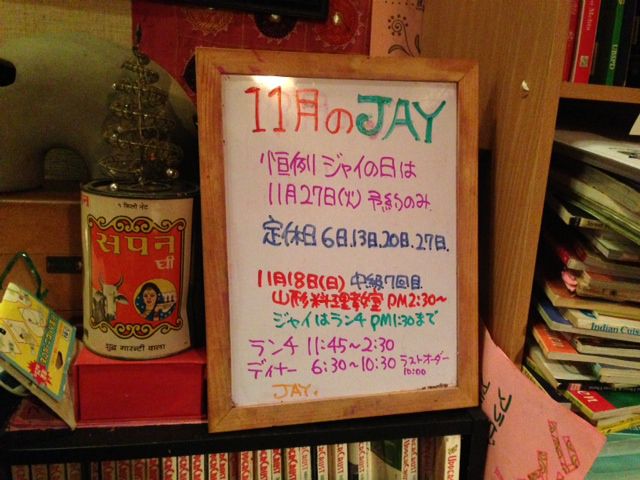 11月のJAY
恒例 ジャイの日は
11月27日(火) 予約のみ
定休日 6日.13日.20日.27日.
11月18日(日) 中級7回目
山形料理教室 PM2:30~
ジャイはランチ PM1:30まで
ランチ 11:45~2:30
ディナー 6:30~10:30 ラストオーダー
10:00
JAY.
१ किलो नेट
सपन
घी
शुद्ध गारन्टी वाला
Indian Cuisi